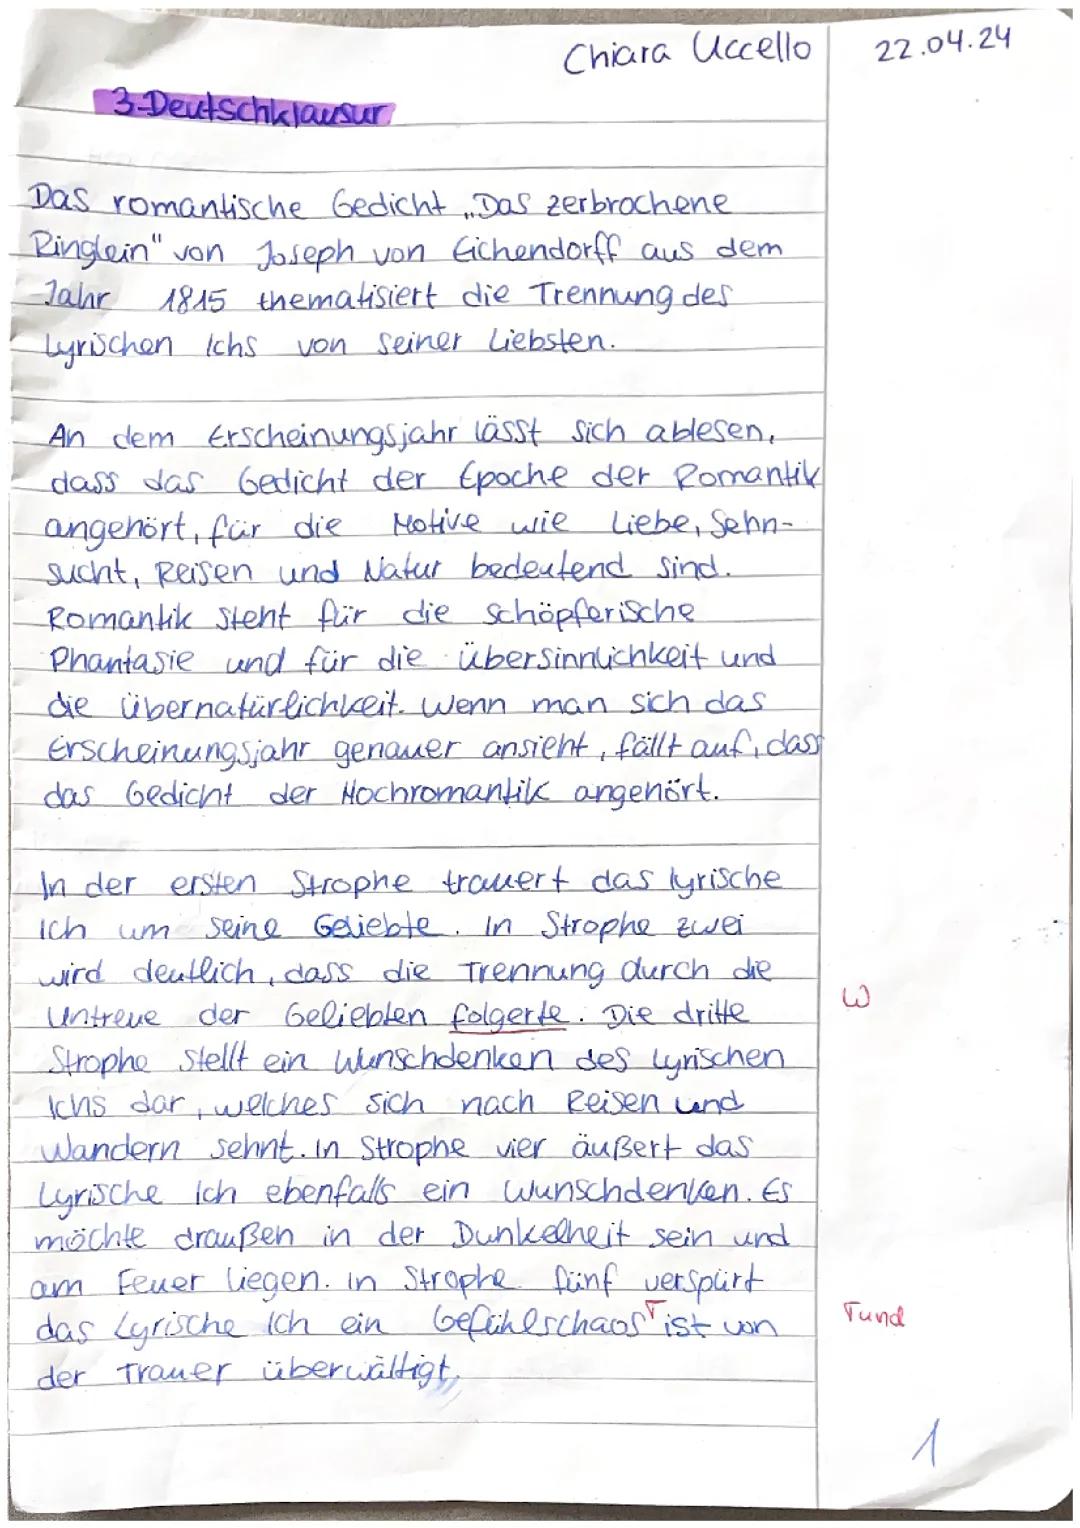 Chiara Uccello 22.04.24
3. Deutschklausur
Das romantische Gedicht „Das zerbrochene
Ringlein" von Joseph von Eichendorff aus dem
Jahr 1815 thematisiert die Trennung des
Lyrischen Ichs von seiner Liebsten.
An dem Erscheinungsjahr lässt sich ablesen,
dass das Gedicht der Epoche der Romantik
angehört, für die Motive wie Liebe, Sehn-
sucht, Reisen und Natur bedeutend sind.
Romantik steht für die schöpferische
Phantasie und für die Übersinnlichkeit und
die Übernatürlichkeit. Wenn man sich das
Erscheinungsjahr genauer ansieht, fällt auf, dass
das Gedicht der Hochromantik angehört.
In der ersten Strophe trauert das lyrische
Ich um seine Geliebte. In Strophe zwei
wird deutlich, dass die Trennung durch die
Untreue der Geliebten folgerte. Die dritte
W
Strophe stellt ein Wunschdenken des Lyrischen
Ichs dar, welches sich nach Reisen und
Wandern sehnt. In Strophe vier äußert das
Lyrische Ich ebenfalls ein Wunschdenken. Es
möchte draußen in der Dunkelheit sein und
am Feuer liegen. In Strophe fünf verspürt
das Lyrische Ich ein Gefühlschaos ist von
Γund
der Trauer überwältigt.
1